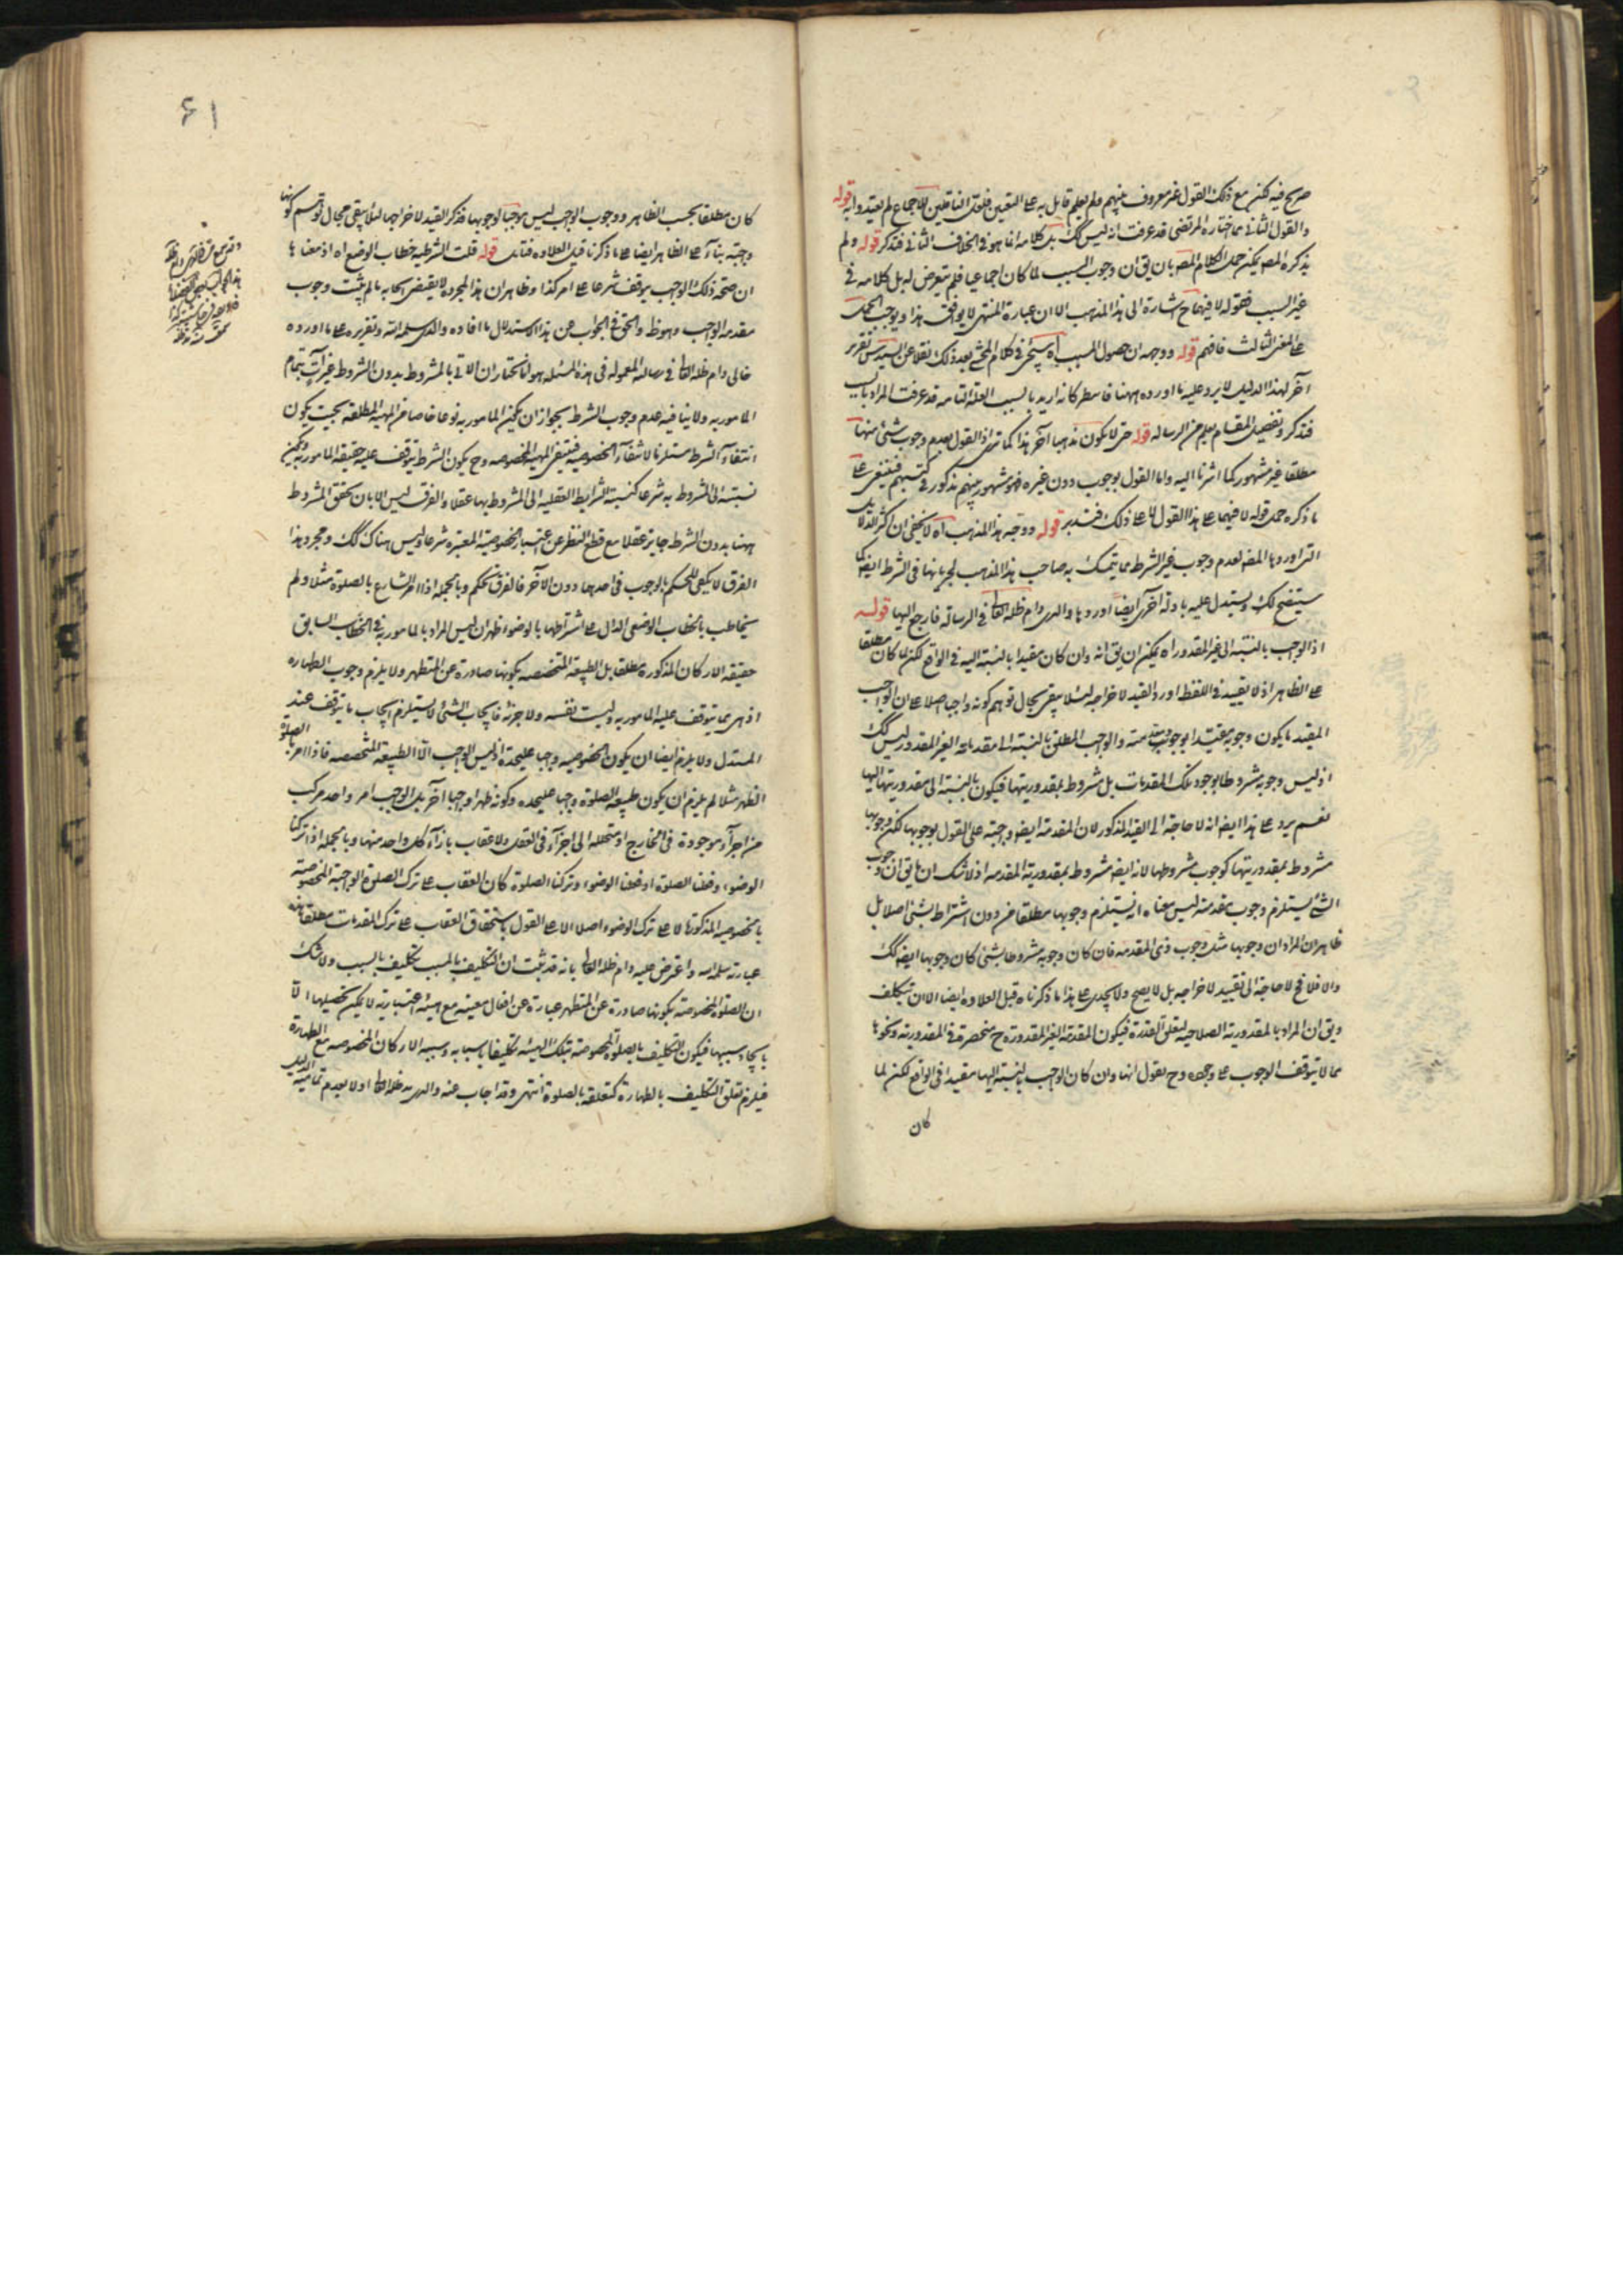 صرح فيه لكن مع ذلك القول غير معروف بينهم ولم يعلم قائل به على التعيين فلعل الناقلين للاجماع لم يعتدوا به قوله
والقول الثاني مما اختاره المرتضى قد عرفت انه ليس كك بل كلامه انما هو في الخلاف الثاني فتذكر قوله ولم
يذكره المصـ يمكن حمل الكلام المصـ بان يق ان وجوب السبب لما كان اجماعيا فلم يتعرض له بل كلامه في
غير السبب فقوله لا فيهما ح اشارة الى هذا المذهب الا ان عبارة المنتهى لا يوافق هذا ويوجب الحمل
على المعنى الثالث فافهم قوله ووجهه ان حصول المسبب اه سيجئ في كلام المحشي بعد ذلك نقلا عن السيد تقرير
آخر لهذا الدليل لا يرد عليه ما اورده ههنا فاسطر كانه اريد بالسبب العلة التامة قد عرفت المراد بالسبب
فتذكر وتفصيل المقام يعلم من الرسالة قوله حتى لا يكون مذهبا آخر هذا كما ترى اذ القول بعدم وجوب شئ منها
مطلقا غير مشهور كما اشرنا اليه واما القول بوجوب دون غيره فهو مشهور بينهم مذكور في كتبهم فينبغي على
ما ذكره حمل قوله لا فيهما على هذا القول لا على ذلك فتدبر قوله ووجه هذا المذهب اه لا يخفى ان اكثر الدلائل
التي اوردها المصـ لعدم وجوب غير الشرط مما يتمسك به صاحب هذا المذهب لجريانها في الشرط ايضا كما
سيتضح لك ويستدل عليه بادلة آخر ايضا اوردها والدي دام ظله العالي في الرسالة فارجع اليها قوله
اذ الواجب بالنسبة الى غير المقدور اه يمكن ان يق انه وان كان مقيدا بالنسبة اليه في الواقع لكن لما كان مطلقا
على الظاهر اذ لا تقييد في اللفظ اورد القيد لاخراجه لئلا يبقى مجال توهم كونه واجبا اصلا على ان الواجب
المقيد ما يكون وجوبه مقيدا بوجود مقدمته والواجب المطلق بالنسبة الى مقدماته الغير المقدور ليس كك
اذ ليس وجوبه مشروطا بوجود تلك المقدمات بل مشروط بمقدوريتها فيكون بالنسبة الى مقدوريتها اليها
نعم يرد على هذا ايضا انه لا حاجة الى القيد المذكور لان المقدمة ايضا واجبة على القول بوجوبها لكن وجوبها
مشروط بمقدوريتها كوجوب مشروطها لانه ايضا مشروط بمقدورية المقدمة اذ لا شك ان ما يق ان وجوب
الشئ يستلزم وجوب مقدمته ليس معناه انه يستلزم وجوبها مطلقا من دون اشتراط بشئ اصلا بل
ظاهر ان المراد ان وجوبها مثل وجوب ذي المقدمة فان كان وجوبه مشروطا بشئ كان وجوبها ايضا كك
والا فلا فح لا حاجة الى تقييد لاخراجه بل لا يصح ولا يجدي على هذا ما ذكرناه قبل العلاوة ايضا الا ان يتكلف
ويق ان المراد بالمقدورية الصلاحية لتعلق القدرة فيكون المقدمة الغير المقدورة ح منحصرة في المقدورية ونحوها
مما لا يتوقف الوجوب على وجوده وح نقول انها وان كان الواجب بالنسبة اليها مقيدا في الواقع لكن لما
كان
۶۱
كان مطلقا بحسب الظاهر ووجوب الواجب ليس موجبا لوجوبها فذكر القيد لاخراجها لئلا يبقى مجال توهم كونها
واجبة بناء على الظاهر ايضا على ما ذكرنا قبل العلاوة فتامل قوله قلت الشرطية خطاب الوضع اه اذ معناها
ان صحة ذلك الواجب يتوقف شرعا على امر كذا وظاهر ان هذا بمجرده لا يقتضي ايجابه ما لم يثبت وجوب
مقدمة الواجب وهو ظ والحق في الجواب عن هذا الاستدلال ما افاده والدي سلمه الله وتقريره على ما اورده
خالي دام ظله العالي في رسالته المعمولة في هذه المسئلة هو انا نختار ان الاتي بالمشروط بدون الشرط غير آت بتمام
المامور به ولا ينافيه عدم وجوب الشرط بجواز ان يكون المامور به نوعا خاصا من المهية المطلقة بحيث يكون
انتفاء الشرط مستلزما لانتفاء الخصوصية فينتفي المهية المخصوصة وح يكون الشرط يتوقف عليه حقيقة المامور به ويكون
نسبته الى المشروط به شرعا كنسبة الشرايط العقلية الى المشروط بها عقلا والفرق ليس الا بان تحقق المشروط
ههنا بدون الشرط جايز عقلا مع قطع النظر عن اعتبار الخصوصية المعتبرة شرعا وليس هناك كك ومجرد هذا
الفرق لا يكفي للحكم بالوجوب في احدهما دون الآخر فالفرق تحكم وبالجملة اذا امر الشارع بالصلوة مثلا ولم
يخاطب بالخطاب الوضعي الدال على اشتراطها بالوضوء اظهر ان ليس المراد بالمامور به في الخطاب السابق
حقيقة الاركان المذكورة مطلقا بل الطبيعة المتخصصة بكونها صادرة عن المتطهر ولا يلزم وجوب الطهارة
اذ هي مما يتوقف عليه المامور به وليست نفسه ولا جزئه فايجاب الشئ لا يستلزم ايجاب ما يتوقف عند
المستدل ولا يلزم ايضا ان يكون الخصوصية واجبا عليحدة اذ ليس الواجب الا الطبيعة المتخصصة فاذا امر بالصلوة
الطهر مثلا لم يلزم ان يكون طبيعة الصلوة واجبا عليحدة وكونه طهرا واجبا آخر بل الواجب امر واحد مركب
من اجزاء موجودة في الخارج او متحللة الى اجزاء في العقل ولا عقاب بازاء كل واحد منها وبالجملة اذا تركنا
الوضوء وفعلنا الصلوة او فعلنا الوضوء وتركنا الصلوة كان العقاب على ترك الصلوة الواجبة المخصوصة
بالخصوصية المذكورة لا على ترك الوضوء اصلا الا على القول باستحقاق العقاب على ترك المقدمات مطلقا هذه
عبارته سلمه الله واعترض عليه دام ظله العالي بانه قد ثبت ان التكليف بالمسبب تكليف بالسبب ولا شك
ان الصلوة المخصوصة بكونها صادرة عن المتطهر عبارة عن افعال معينة مع هيئة اعتبارية لا يمكن تحصيلها الا
بايجاد سببها فيكون التكليف بالصلوة المخصوصة بتلك الهيئة تكليفا باسبابه وسببه الاركان المخصوصة مع الطهارة
فيلزم تعلق التكليف بالطهارة كتعلقه بالصلوة انتهى وقد اجاب عنه والدي مد ظله العالي اولا بعدم تمامية الدليل